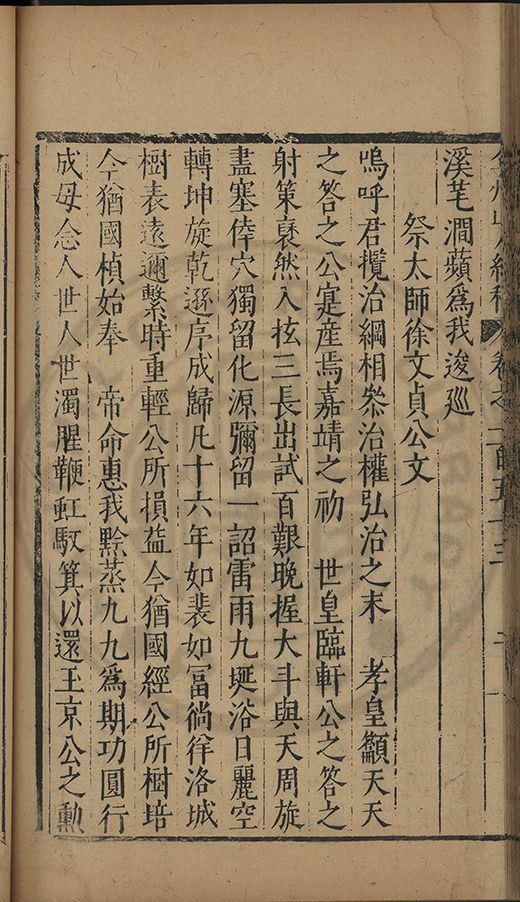 山人續稿 卷之一百五十三
溪芼澗蘋爲我逡巡
祭太師徐文貞公文
嗚呼君攬治綱相叅治權弘治之末 孝皇籲天天
之答之公寔產焉嘉靖之初 世皇臨軒公之答之
射策裒然入抜三長出試百艱晩握大斗與天周旋
盡塞倖穴獨留化源彌留一詔雷雨九埏浴日麗空
轉坤旋乾遜序成歸凡十六年如裴如冨徜徉洛城
樹表遠邇繫時重輕公所損益今猶國經公所樹培
今猶國楨始奉 帝命惠我黔蒸九九爲期功圓行
成毋念人世人世濁腥鞭虹馭箕以還玉京公之勲